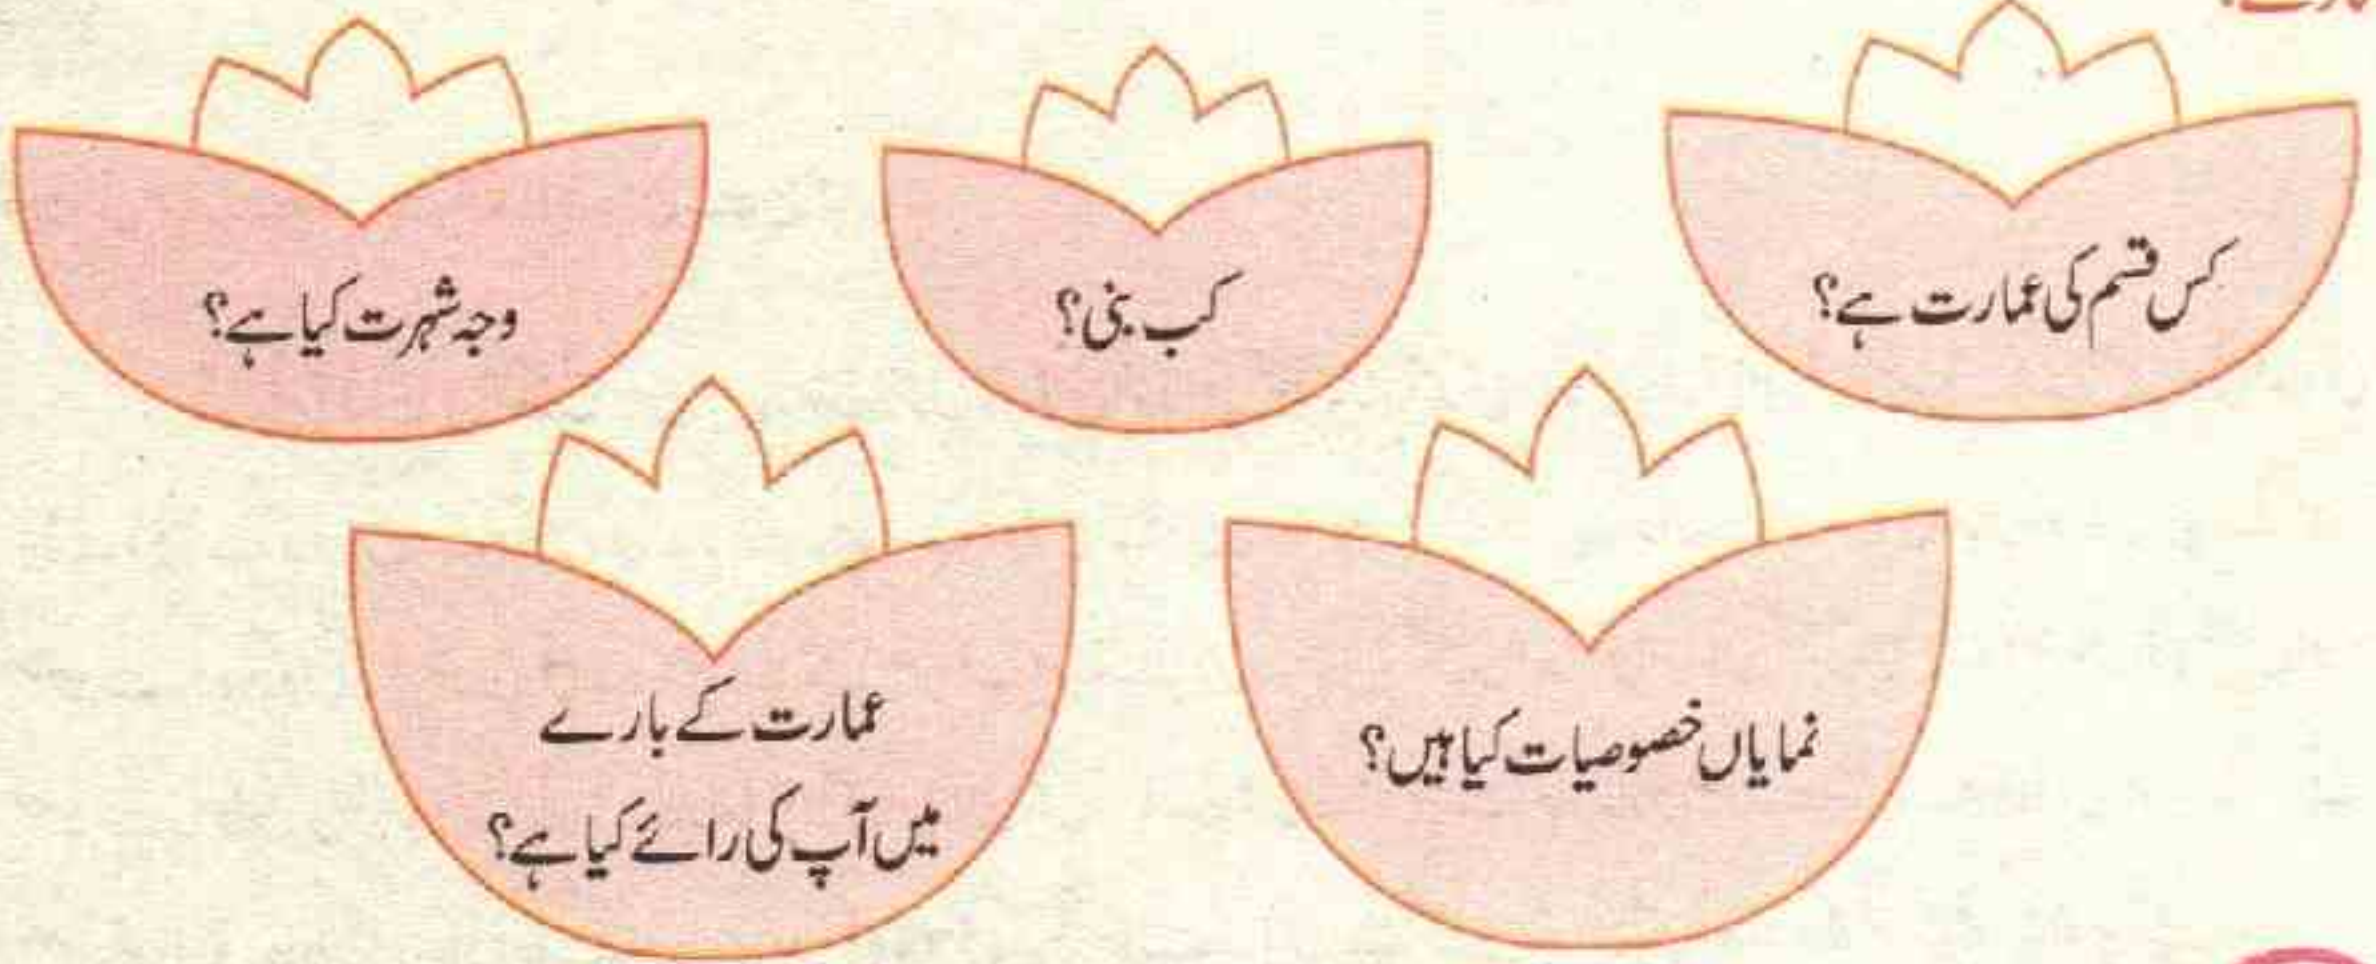 کس قسم کی عمارت ہے؟
کب بنی؟
وجہ شہرت کیا ہے؟
نمایاں خصوصیات کیا ہیں؟
عمارت کے بارے
میں آپ کی رائے کیا ہے؟